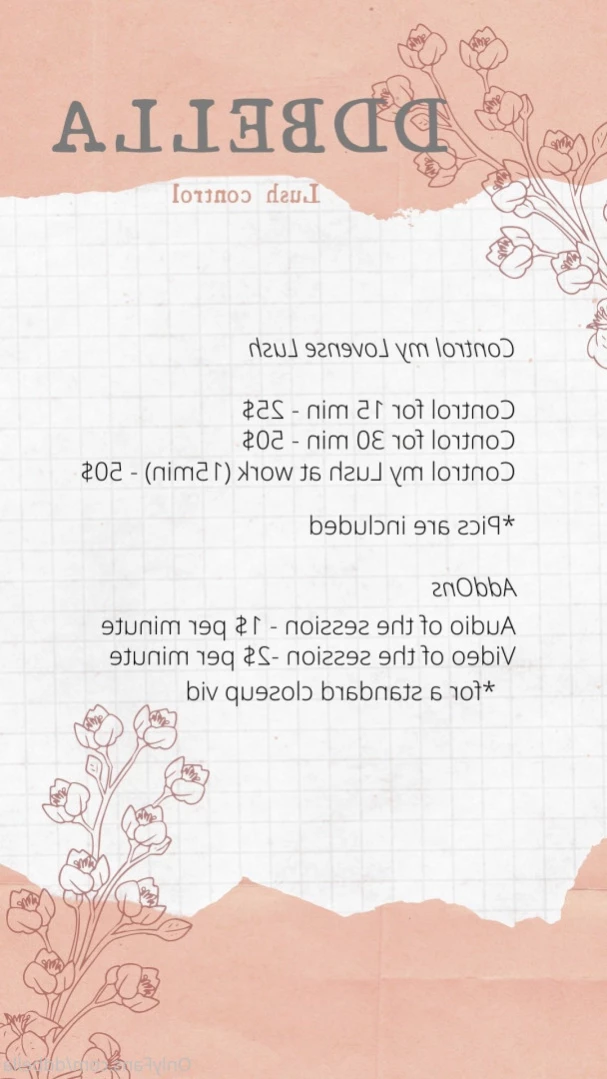 DDBELLA
Lush control
Control my Lovense Lush
Control for 15 min - 25$
Control for 30 min - 50$
Control my Lush at work (15min) - 50$
*Pics are included
AddOns
Audio of the session - 1$ per minute
Video of the session -2$ per minute
*for a standard closeup vid
OnlyFans.com/ddbella